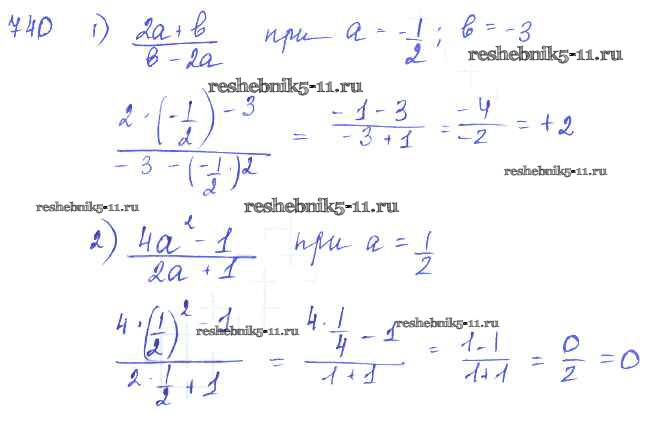 740 1) (2a + b)/(b - 2a) при a = -1/2; b = -3
reshebnik5-11.ru
reshebnik5-11.ru
(2 · (-1/2) - 3)/(-3 - (-1/2 ·)2) = (-1 - 3)/(-3 + 1) = -4/-2 = +2
reshebnik5-11.ru
reshebnik5-11.ru reshebnik5-11.ru
2) (4a² - 1)/(2a + 1) при a = 1/2
(4 · (1/2)² - 1)/(2 · 1/2 + 1) = (4 · 1/4 - 1)/(1 + 1) = (1 - 1)/(1 + 1) = 0/2 = 0
reshebnik5-11.ru reshebnik5-11.ru